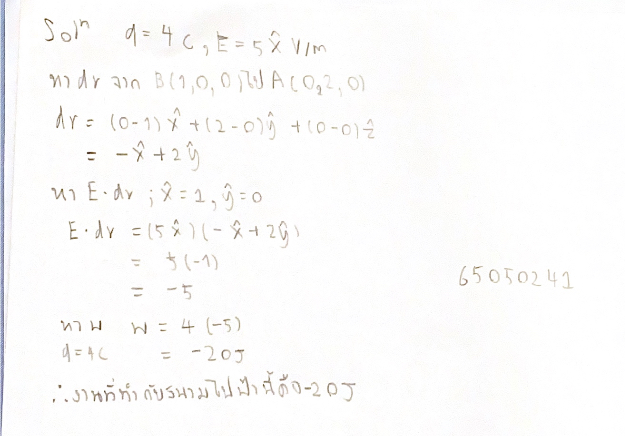 Solⁿ q = 4 C, E = 5x̂ V/m
หา dr จาก B(1,0,0) ไป A(0,2,0)
dr = (0-1)x̂ + (2-0)ŷ + (0-0)ẑ
= -x̂ + 2ŷ
หา E·dr ; x̂ = 1, ŷ = 0
E·dr = (5x̂)(-x̂ + 2ŷ)
= 5(-1)
= -5
65050241
หา W W = 4(-5)
q = 4C = -20J
∴ งานที่ทำกับสนามไฟฟ้านี้คือ -20J